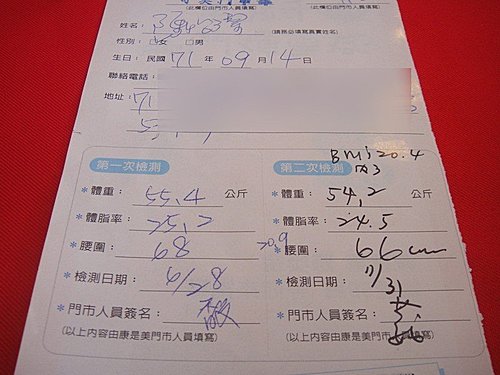 (此欄位由門市人員填寫)
(此欄位由門市人員填寫)
姓名:
(請務必填寫真實姓名)
性別: □女 □男
生日: 民國 71 年 09 月 14 日
聯絡電話:
地址: 71
BMI 20.4
內3
第一次檢測
*體重: 55.4 公斤
*體脂率: 25.2
*腰圍: 68
*檢測日期: 4/28
*門市人員簽名:
(以上內容由康是美門市人員填寫)
第二次檢測
*體重: 54.2 公斤
*體脂率: 24.5
20.9
*腰圍: 66cm
*檢測日期: /31
*門市人員簽名:
(以上內容由康是美門市人員填寫)